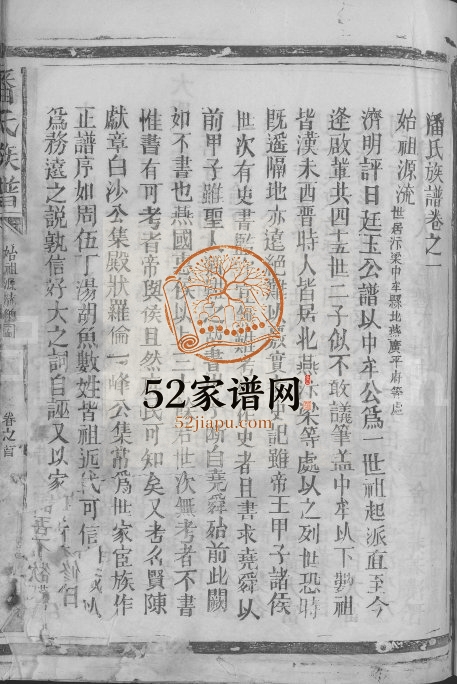 潘氏族譜卷之一
始祖源流 世居汴梁中牟縣北燕廣平府等處
濟明評曰廷玉公譜以中牟公爲一世祖起派直至今
逢啟輩共四十五世二子似不敢議筆盖中牟以下數祖
皆漢末西晋時人皆居北燕汴梁等處以之列世恐時
既遥隔地亦遠絶難以 實 史記雖帝王甲子諸侯
世次有史書監 作史者且書求堯舜以
前甲子雖聖人 書 斷自堯舜始前此闕
如不書也燕國 侯以上二十 君世次無考者不書
惟書有可考者帝與侯且然 民可知矣又考名賢陳
獻章白沙公集殿狀羅倫一峰公集常爲世家宦族作
正譜序如周伍丁湯胡魚數姓皆祖近代可信 以
爲務遠之説孰信好大之詞自誣又以家
潘氏族譜
始祖源流總圖
卷之首
52家谱网
52jiapu.com